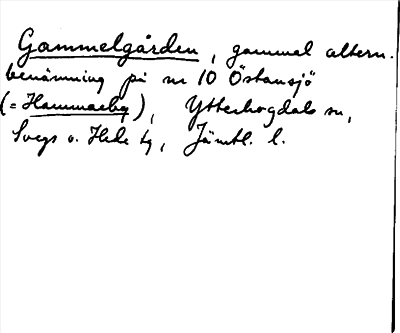 Gammelgården, gammal altern.
benämning på nr 10 Östansjö
(= Hammarbg), Ytterhogdals sn,
Svegs o. Hede tg, Jämtl. l.